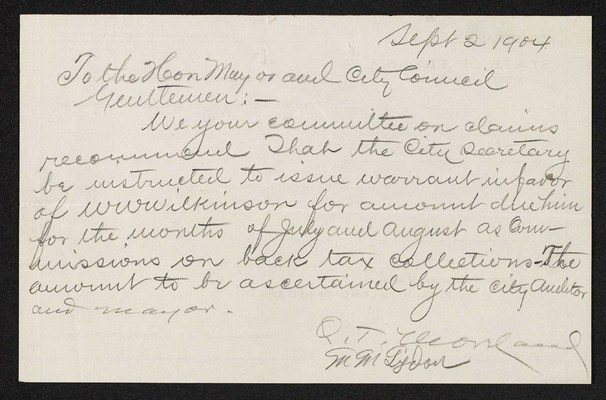 Sept 2 1904
To the Hon Mayor and City Council
Gentlemen:—
We your committee on claims
recommend that the City Secretary
be instructed to issue warrant in favor
of WW Wilkinson for amount due him
for the months of July and August as Com-
missions on back tax collections - The
amount to be ascertained by the city Auditor
and mayor.